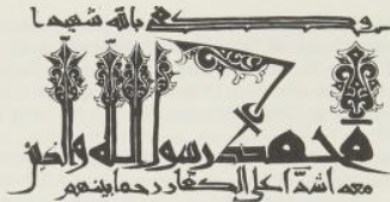 وكفى بالله شهيدا
محمد رسول الله والذين
معه اشدّا على الكفار رحما بينهم